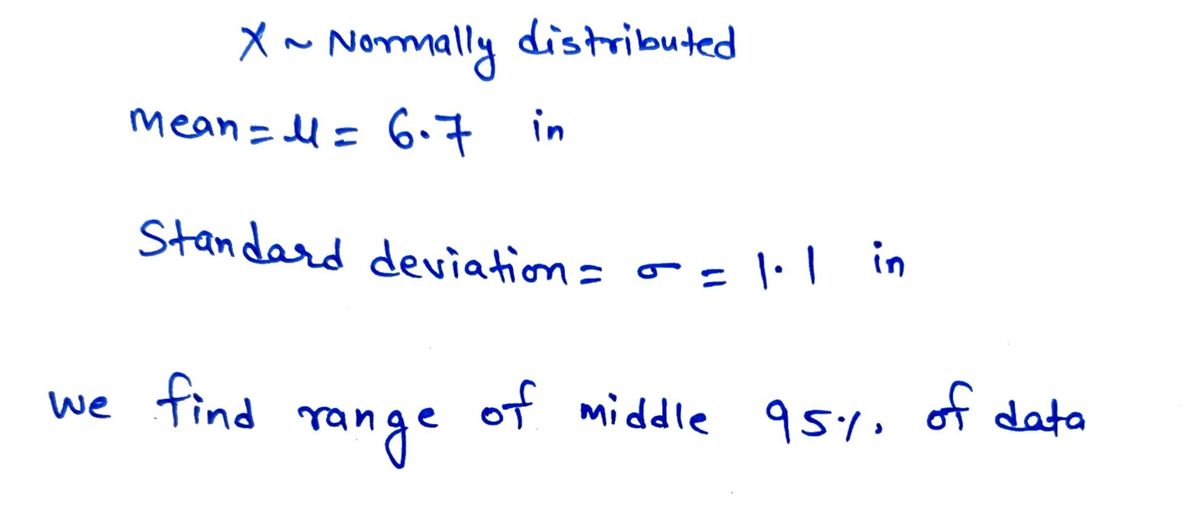 X ~ Normally distributed
mean = μ = 6.7 in
Standard deviation = σ = 1.1 in
we find range of middle 95% of data